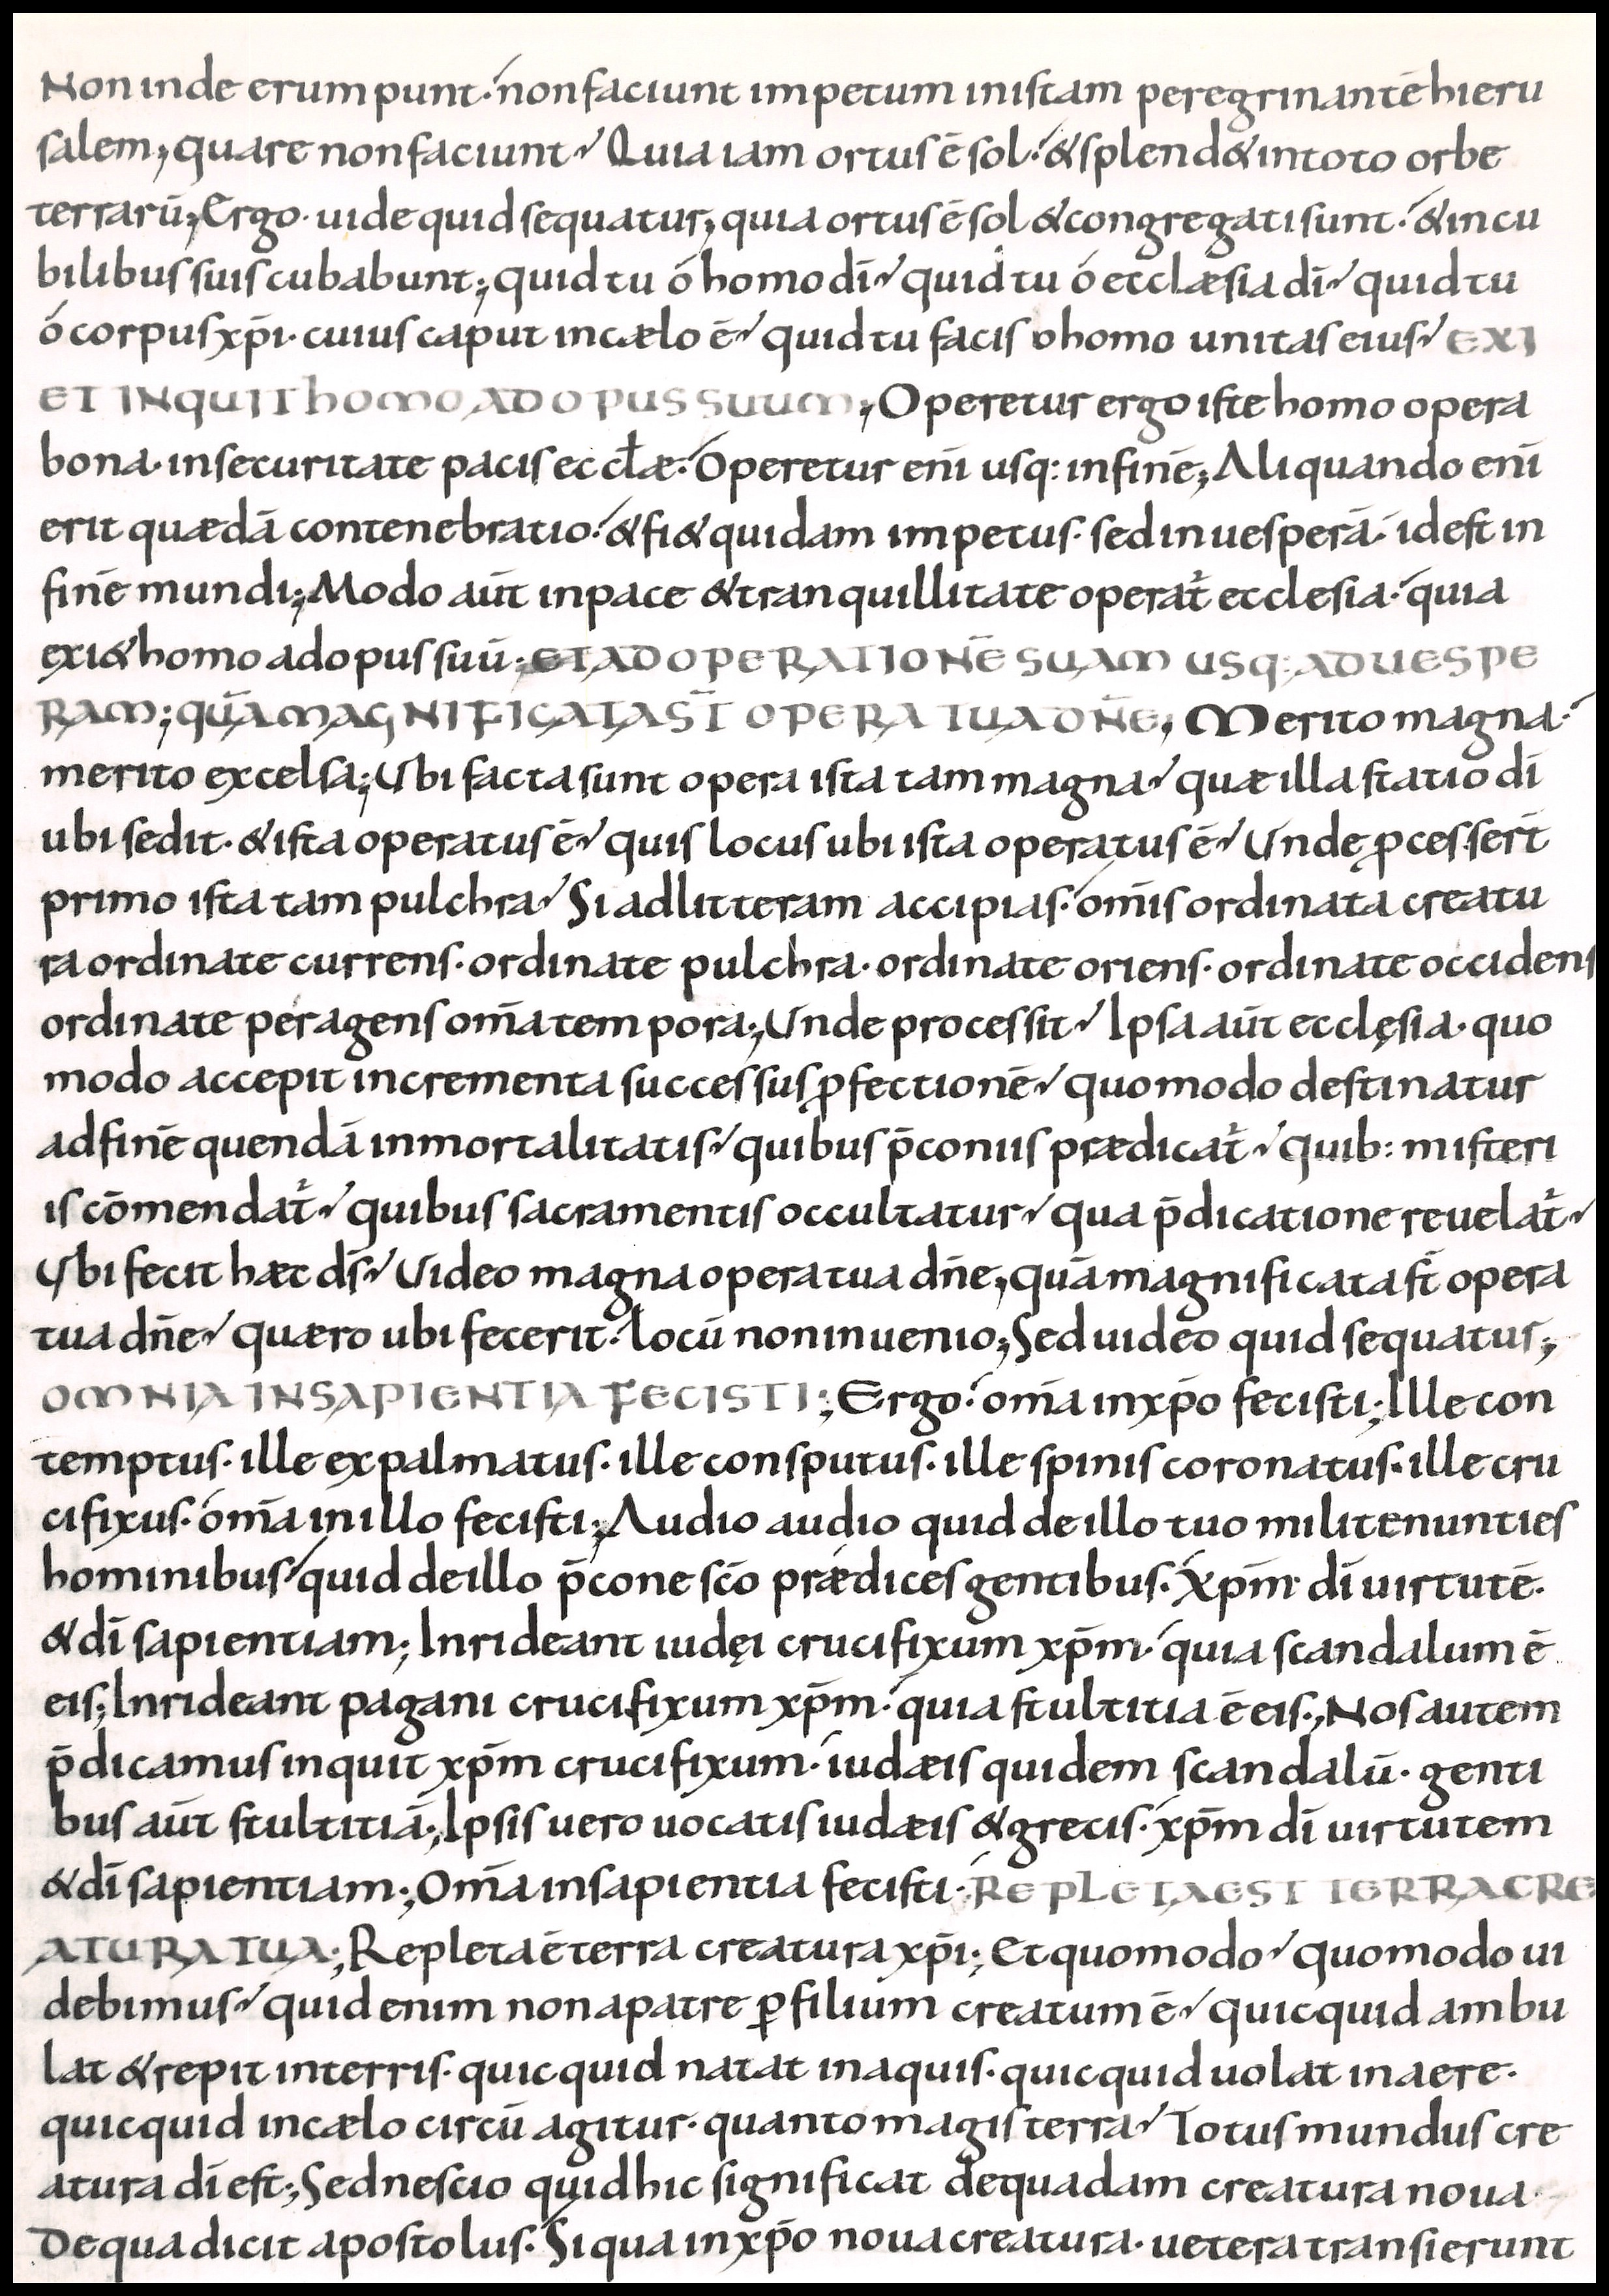 Non inde erumpunt · non faciunt impetum in istam peregrinantē hieru
salem; quare non faciunt? Quia iam ortus ē sol · & splend& in toto orbe
terrarū; Ergo · uide quid sequatur; quia ortus ē sol & congregati sunt · & in cu
bilibus suis cubabunt; quid tu ó homo dī? quid tu ó ecclæsia dī? quid tu
ó corpus xp̄i · cuius caput in cælo ē? quid tu facis o homo unitas eius? EXI
ET INQUIT HOMO AD OPUS SUUM; Operetur ergo iste homo opera
bona · in securitate pacis eccłæ · Operetur enī usq: in finē; Aliquando enī
erit quædā contenebratio · & fi& quidam impetus · sed in uesperā · id est in
finē mundi; Modo aūt in pace & tranquillitate operat̄ ecclesia · quia
exi& homo ad opus suū; ET AD OPERATIONĒ SUAM USQ: AD UESPE
RAM; QUĀ MAGNIFICATA ST̄ OPERA TUA DN̄E; Merito magna ·
merito excelsa; Ubi facta sunt opera ista tam magna? quæ illa statio dī
ubi sedit · & ista operatus ē? quis locus ubi ista operatus ē? Unde ꝓcesser̄t
primo ista tam pulchra? Si ad litteram accipias · om̄is ordinata creatu
ra ordinate currens · ordinate pulchra · ordinate oriens · ordinate occidens
ordinate peragens om̄a tempora; Unde processit? Ipsa aūt ecclęsia · quo
modo accepit incrementa successus ꝑfectionē? quomodo destinatur
ad finē quendā inmortalitatis? quibus p̄coniis prædicat̄? quib: misteri
is cōmendat̄? quibus sacramentis occultatur? qua p̄dicatione reuelat̄?
Ubi fecit hæc ds̄? Video magna opera tua dn̄e; quā magnificata st̄ opera
tua dn̄e? quæro ubi fecerit · locū non inuenio; Sed uideo quid sequatur;
OMNIA IN SAPIENTIA FECISTI; Ergo · om̄a in xp̄o fecisti; Ille con
temptus · ille expalmatus · ille consputus · ille spinis coronatus · ille cru
cifixus · om̄a in illo fecisti; Audio audio quid de illo tuo milite nunties
hominibus · quid de illo p̄cone sc̄o prædices gentibus · Xp̄m dī uirtutē ·
& dī sapientiam; Inrideant iudęi crucifixum xp̄m · quia scandalum ē
eis; Inrideant pagani crucifixum xp̄m · quia stultitia ē eis; Nos autem
p̄dicamus inquit xp̄m crucifixum · iudæis quidem scandalū · genti
bus aūt stultitiā; Ipsis uero uocatis iudæis & grecis · xp̄m dī uirtutem
& dī sapientiam; Om̄a in sapientia fecisti · REPLETA EST TERRA CRE
ATURA TUA; Repleta ē terra creatura xp̄i; Et quomodo? quomodo ui
debimus? quid enim non a patre ꝑ filium creatum ē? quicquid ambu
lat & repit in terris · quicquid natat in aquis · quicquid uolat in aere ·
quicquid in cælo circū agitur · quanto magis terra? Totus mundus cre
atura dī est; Sed nescio quid hic significat de quadam creatura noua ·
De qua dicit apostolus · Si qua in xp̄o noua creatura · uetera transierunt